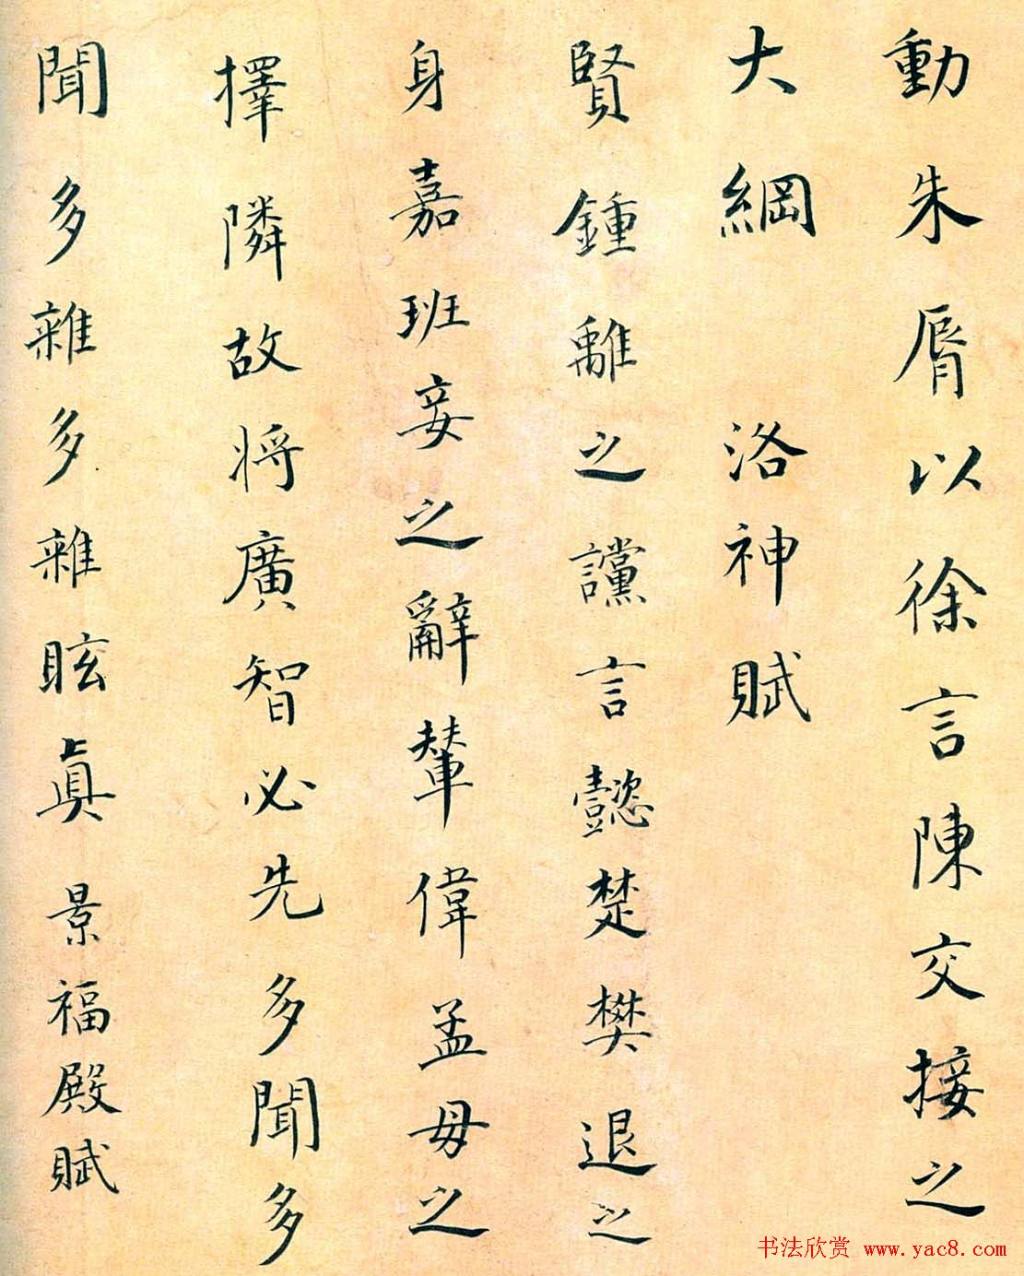 動朱脣以徐言陳交接之
大綱 洛神賦
賢鍾離之讜言懿楚樊退之
身嘉班妾之辭輦偉孟母之
擇隣故将廣智必先多聞多
聞多雜多雜眩眞 景福殿賦
书法欣赏 www.yac8.com